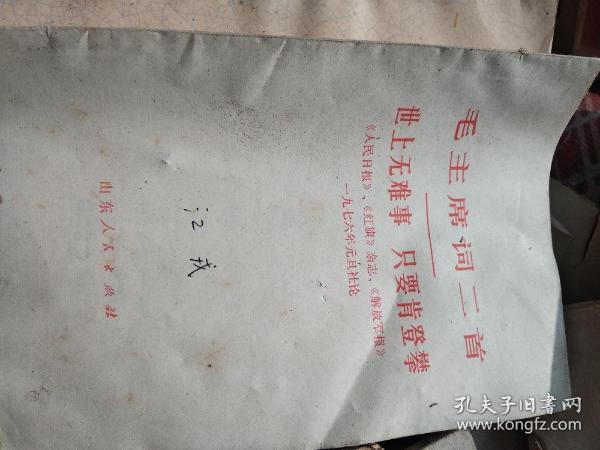 毛主席词二首
世上无难事 只要肯登攀
《人民日报》、《红旗》杂志、《解放军报》
一九七六年元旦社论
江戎
山东人民出版社
孔夫子旧书网
www.kongfz.com